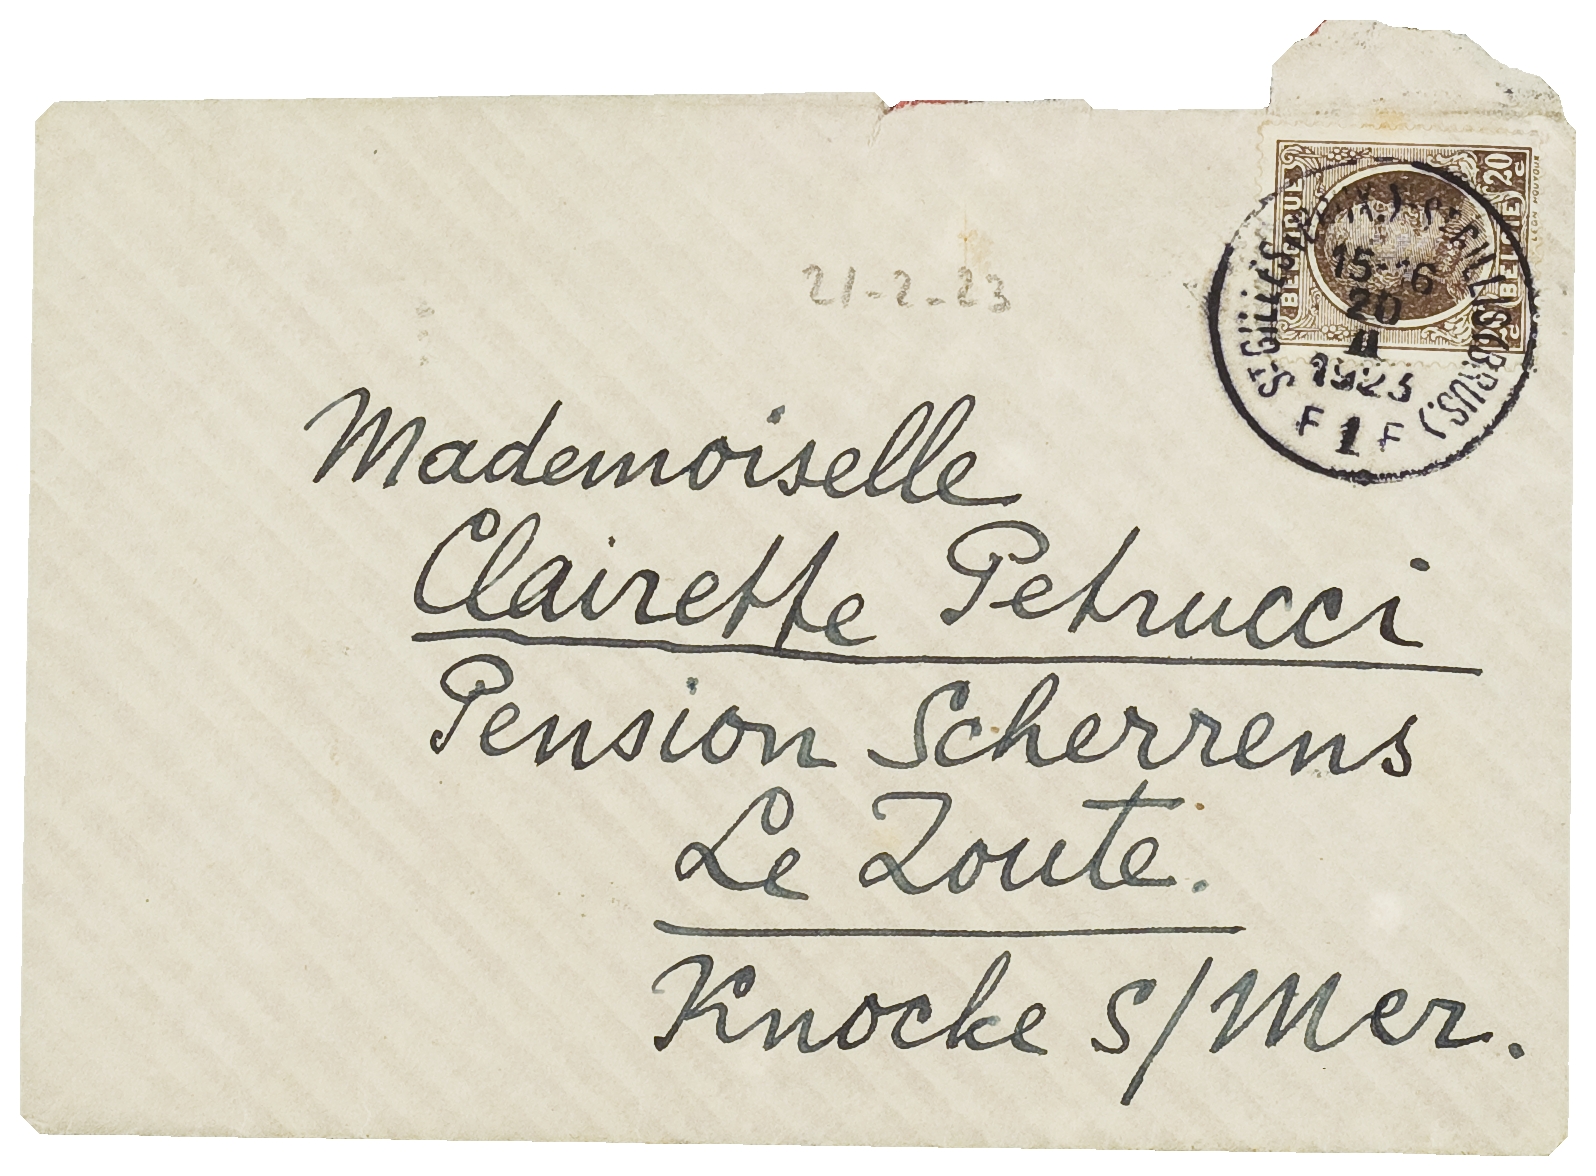 21-2-23
BELGIQUE
20 c
BELGIË
ST GILLES (BRUX.) - ST GILLIS (BRUS.)
20
II
1923
F 1 F
Mademoiselle
Clairette Petrucci
Pension Scherrens
Le Zoute.
Knocke s/Mer.